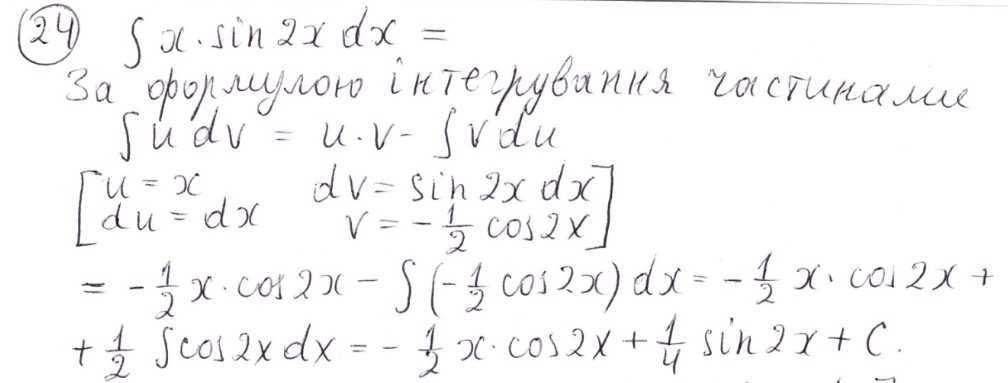 24 ∫ x · sin 2x dx =
За формулою інтегрування частинами
∫ u dv = u · v - ∫ v du
[ u = x dv = sin 2x dx
du = dx v = - 1/2 cos 2x ]
= - 1/2 x · cos 2x - ∫ (- 1/2 cos 2x) dx = - 1/2 x · cos 2x +
+ 1/2 ∫ cos 2x dx = - 1/2 x · cos 2x + 1/4 sin 2x + C.